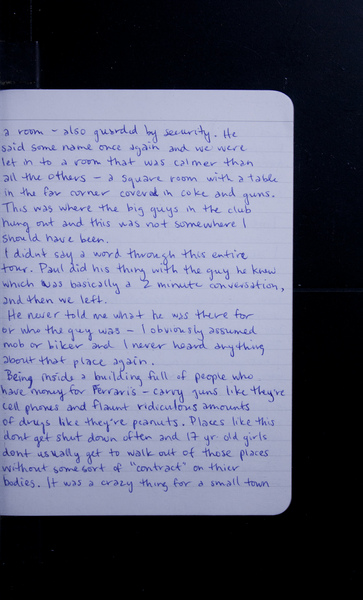 a room - also guarded by security. He
said some name once again and we were
let in to a room that was calmer than
all the others - a square room with a table
in the far corner covered in coke and guns.
This was where the big guys in the club
hung out and this was not somewhere I
should have been.
I didnt say a word through this entire
tour. Paul did his thing with the guy he knew
which was basically a 2 minute conversation,
and then we left.
He never told me what he was there for
or who the guy was - I obviously assumed
mob or biker and I never heard anything
about that place again.
Being inside a building full of people who
have money for Ferraris - carry guns like they're
cell phones and flaunt ridiculous amounts
of drugs like they're peanuts. Places like this
dont get shut down often and 17 yr old girls
dont usually get to walk out of those places
without some sort of "contract" on thier
bodies. It was a crazy thing for a small town